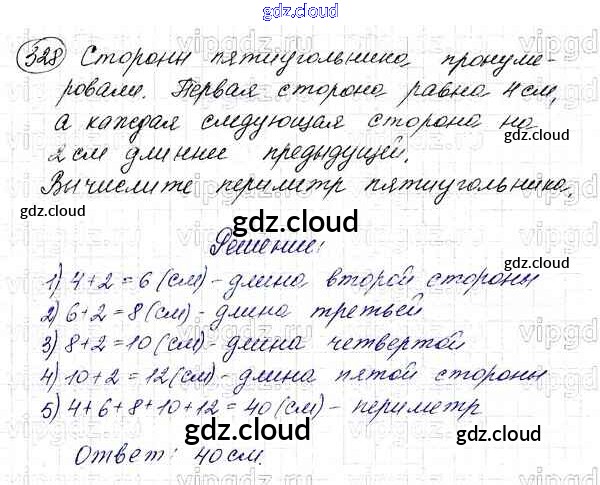 gdz.cloud
328 Стороны пятиугольника пронуме-
ровали. Первая сторона равна 4 см,
а каждая следующая сторона на
gdz.cloud
2 см длиннее предыдущей.
Вычислите периметр пятиугольника.
gdz.cloud
gdz.cloud
Решение:
1) 4+2=6 (см) - длина второй стороны
2) 6+2=8 (см) - длина третьей
gdz.cloud
3) 8+2=10 (см) - длина четвертой
4) 10+2=12 (см) - длина пятой стороны
5) 4+6+8+10+12=40 (см) - периметр
gdz.cloud
gdz.cloud
Ответ: 40 см.
gdz.cloud